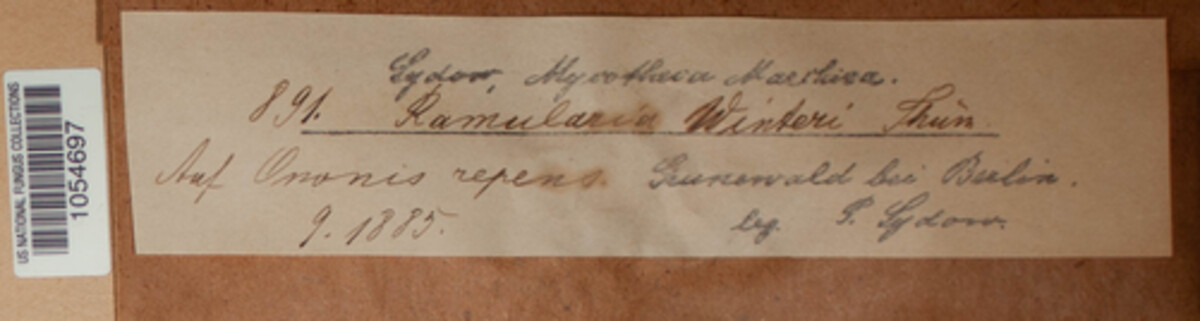 US NATIONAL FUNGUS COLLECTIONS
1054697
Sydow, Mycotheca Marchica.
891. Ramularia Winteri Thüm.
Auf Ononis repens. Grunewald bei Berlin.
9. 1885. leg. P. Sydow.